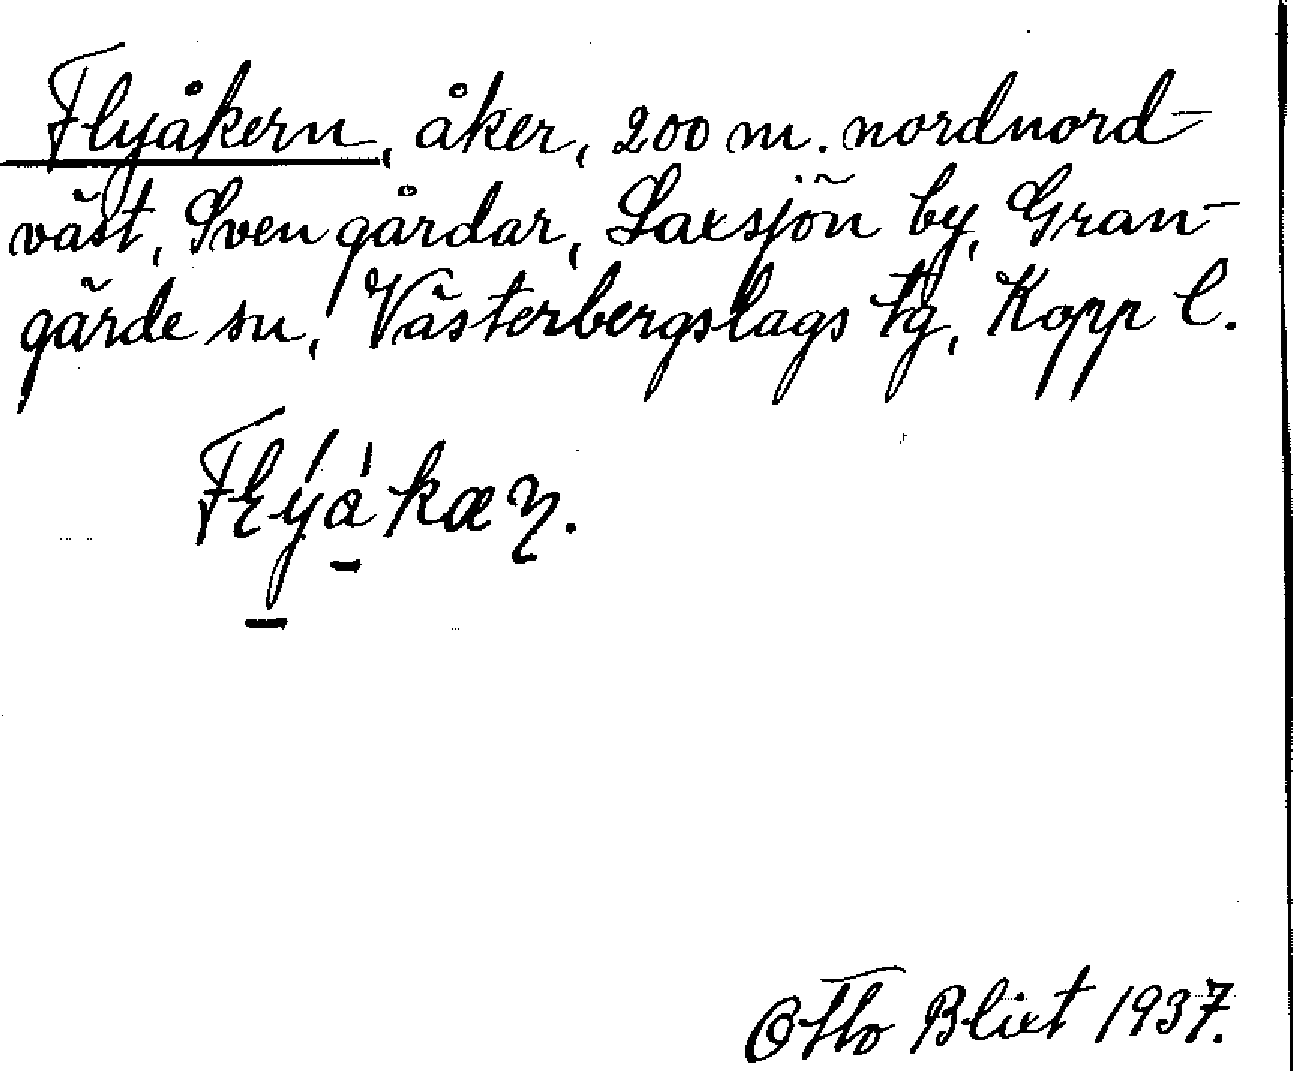 Flyåkern, åker, 200 m. nordnord-
väst, Svengårdar, Saxsjön by, Gran-
gärde sn, Västerbergslags tg, Kopp l.
Flýá̱kæɳ.
Otto Blixt 1937.